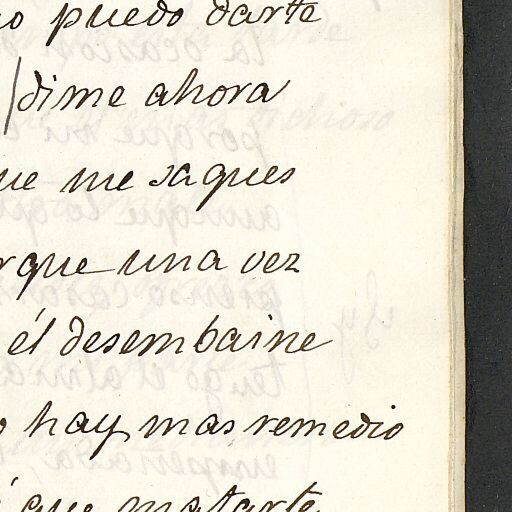 puedo darte
dime ahora
me saques
que una vez
él desembaine
hay mas remedio
que matarte